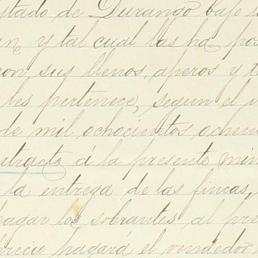 stado de Durango bajo
an, y tal cual las ha po
con sus llenos, aperos y t
les pertenece, segun el
de mil ochocientos ochen
extracto á la presente min
la entrega de las fincas,
pagar los sobrantes al pre
precio pagará el vendedor